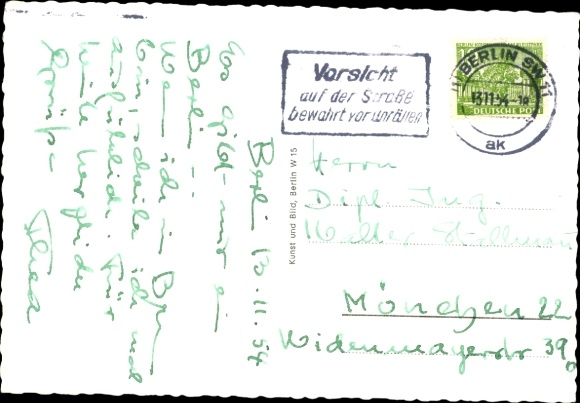 Berlin 13.11.54
Es gibt nur ein
Berlin –
Wenn ich in
bin, schreibe ich mal
ausführlich. Für
heute herzliche
Grüße
Thea
Vorsicht
auf der Straße
bewahrt vor Unfällen
BERLIN SW 11
13.11.54
ak
DEUTSCHE POST
Kunst und Bild, Berlin W 15
Herrn
Dipl. Ing.
Walter
München 22
Widenmayerstr 39